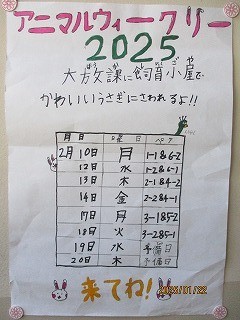 アニマルウィークリー
2025
大放課に飼育小屋で
かわいいうさぎにさわれるよ!!
月日 曜日 ペア
2月10日 月 1-1&6-2
12日 水 1-2&6-1
13日 木 2-1&4-2
14日 金 2-2&4-1
17日 月 3-1&5-2
18日 火 3-2&5-1
19日 水 予備日
20日 木 予備日
来てね!
2025/01/22